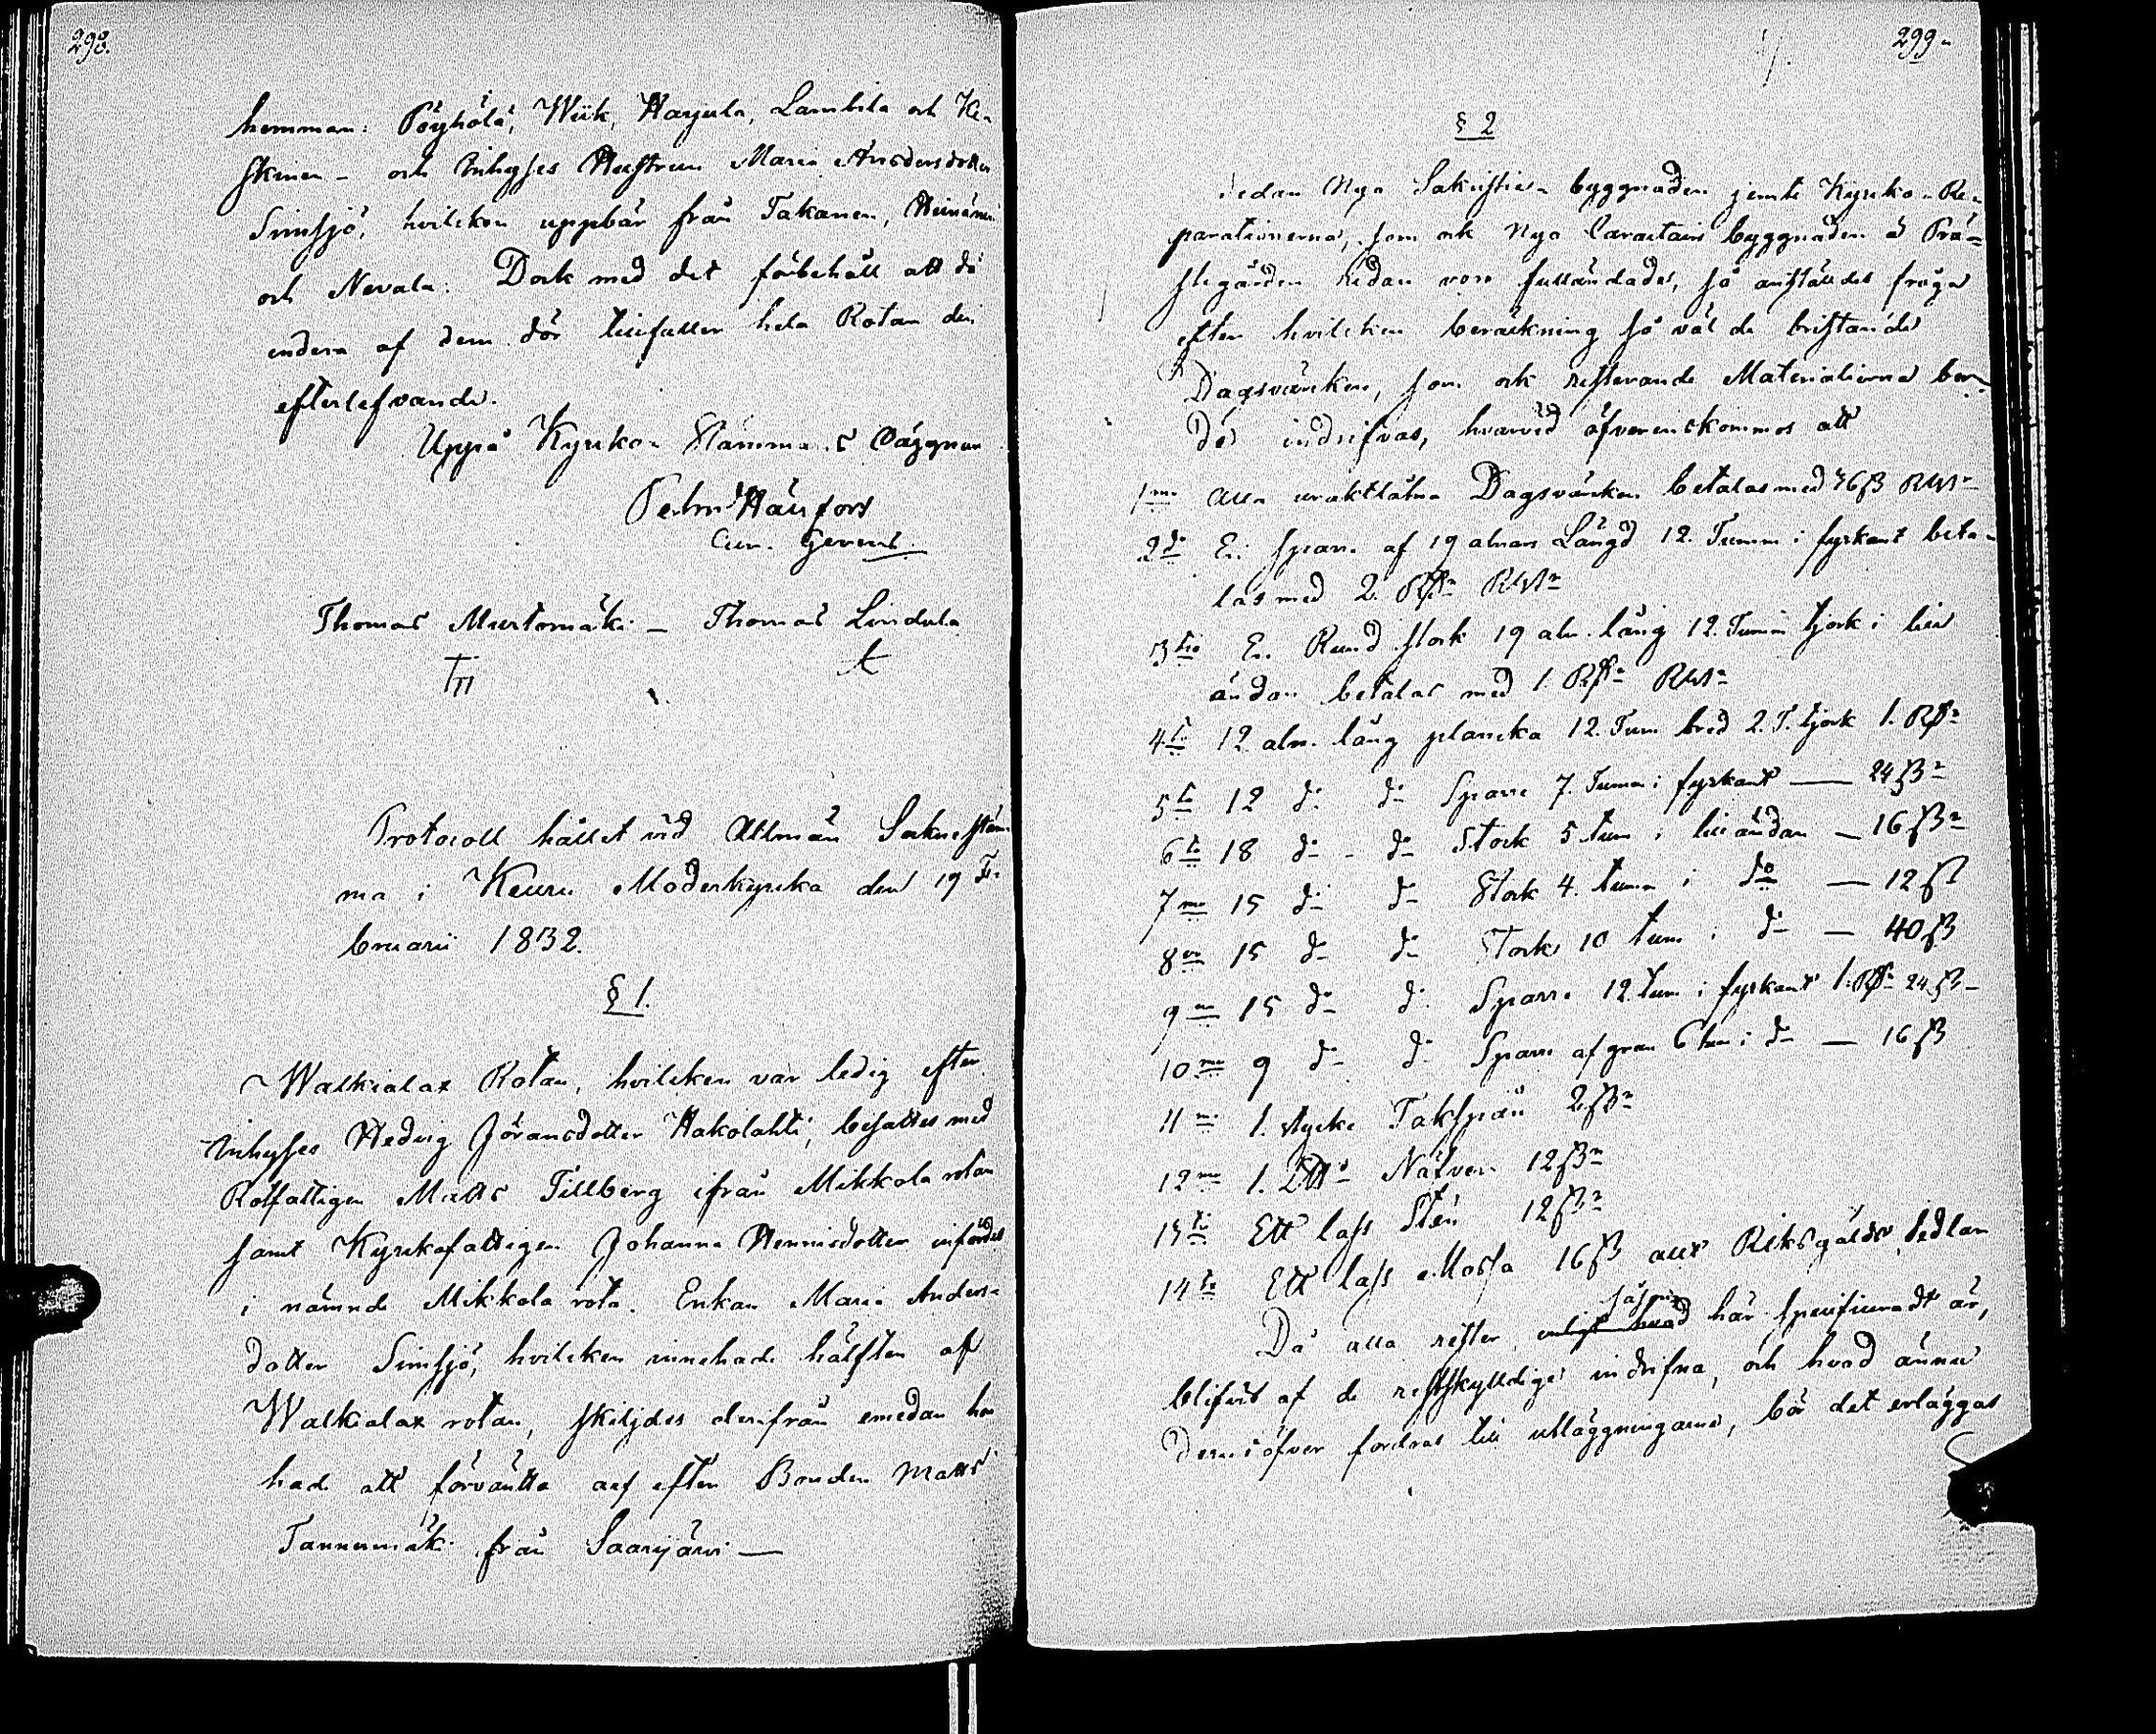 298.
hemman: Pöyhölä, Wiik, Harjula, Lambila och Ke-
skinen - och Inhyses Hustrun Maria Andersdotter
Sinisjö, hvilcken uppbär från Takanen, Heinänen
och Nevala. Dock med det förbehåll att då
endera af dem dör tillfaller hela Rotan den
efterlefvande.
Uppå Kyrko-Stämmans Vägnar
Pehr Hällfors
Cur. Gerens.
Thomas Murtomäki - Thomas Lindula
Protocoll hållet vid Allmän Sockneståm-
ma i Keuru Moderkyrka den 19 Fe-
bruarii 1832.
§ 1.
Walkialax Rotan, hvilcken var ledig efter
Inhyses Hedvig Jöransdotter Hakolahti, besattes med
Rotfattigen Matts Tillberg ifrån Mikkola rotan
samt Kyrkofattigen Johanna Hennisdotter infördes
i nämnde Mikkola rota. Enkan Maria Anders-
dotter Sinisjö, hvilcken innehade hälften af
Walkialax rotan, skiljdes derifrån emedan hon
hade att förvänta arf efter Bonden Matts
Tannermäki från Saarijärvi —
299.
§ 2
Sedan Nya Sakristie-byggnaden jemte Kyrko-Re-
parationerna, som ock Nya Caractairs byggnaden å Prä-
stegården redan voro fulländade, så anställdes fråga
efter hvilcken beräckning så väl de bristande
Dagsvärken, som ock resterande Materialierna bor-
de indrifvas, hvarvid öfverenskommos att
1mo Alla uraktlåtna Dagsvärken betalas med 36 ß RGs
2do En sparre af 19 alnars Längd 12. Tumm i fyrkant beta-
las med 2. Rdr RGs
3tio En Rund stock 19 aln. lång 12. Tumm tjock i lill
ändan betalas med 1. Rdr RGs
4to 12 aln. lång plancka 12. Tum bred 2. T. tjock 1. Rdr
5to 12 do do Sparre 7. Tumm i fyrkant — 24 ß
6to 18 do - do Stock 5 tum i lilländan — 16 ß
7mo 15 do do Stock 4. tumm i do — 12 ß
8vo 15 do do Stock 10 tum i do — 40 ß
9no 15 do do Sparre 12 tum i fyrkant 1. Rdr 24 ß
10mo 9 do do Sparre af gran 6 tum i do — 16 ß
11mo 1. stycke Takspån 2 ß
12mo 1. LM Näfver 12 ß
13tio Ett lass Sten 12 ß
14to Ett lass Mossa 16 ß allt Riksgälds Sedlar
Då alla rester såsom enligt hvad här specificeradt är,
blifvit af de restskylldige indrifna, och hvad ännu
derutöfver fordras till utläggningarne, bör det erläggas